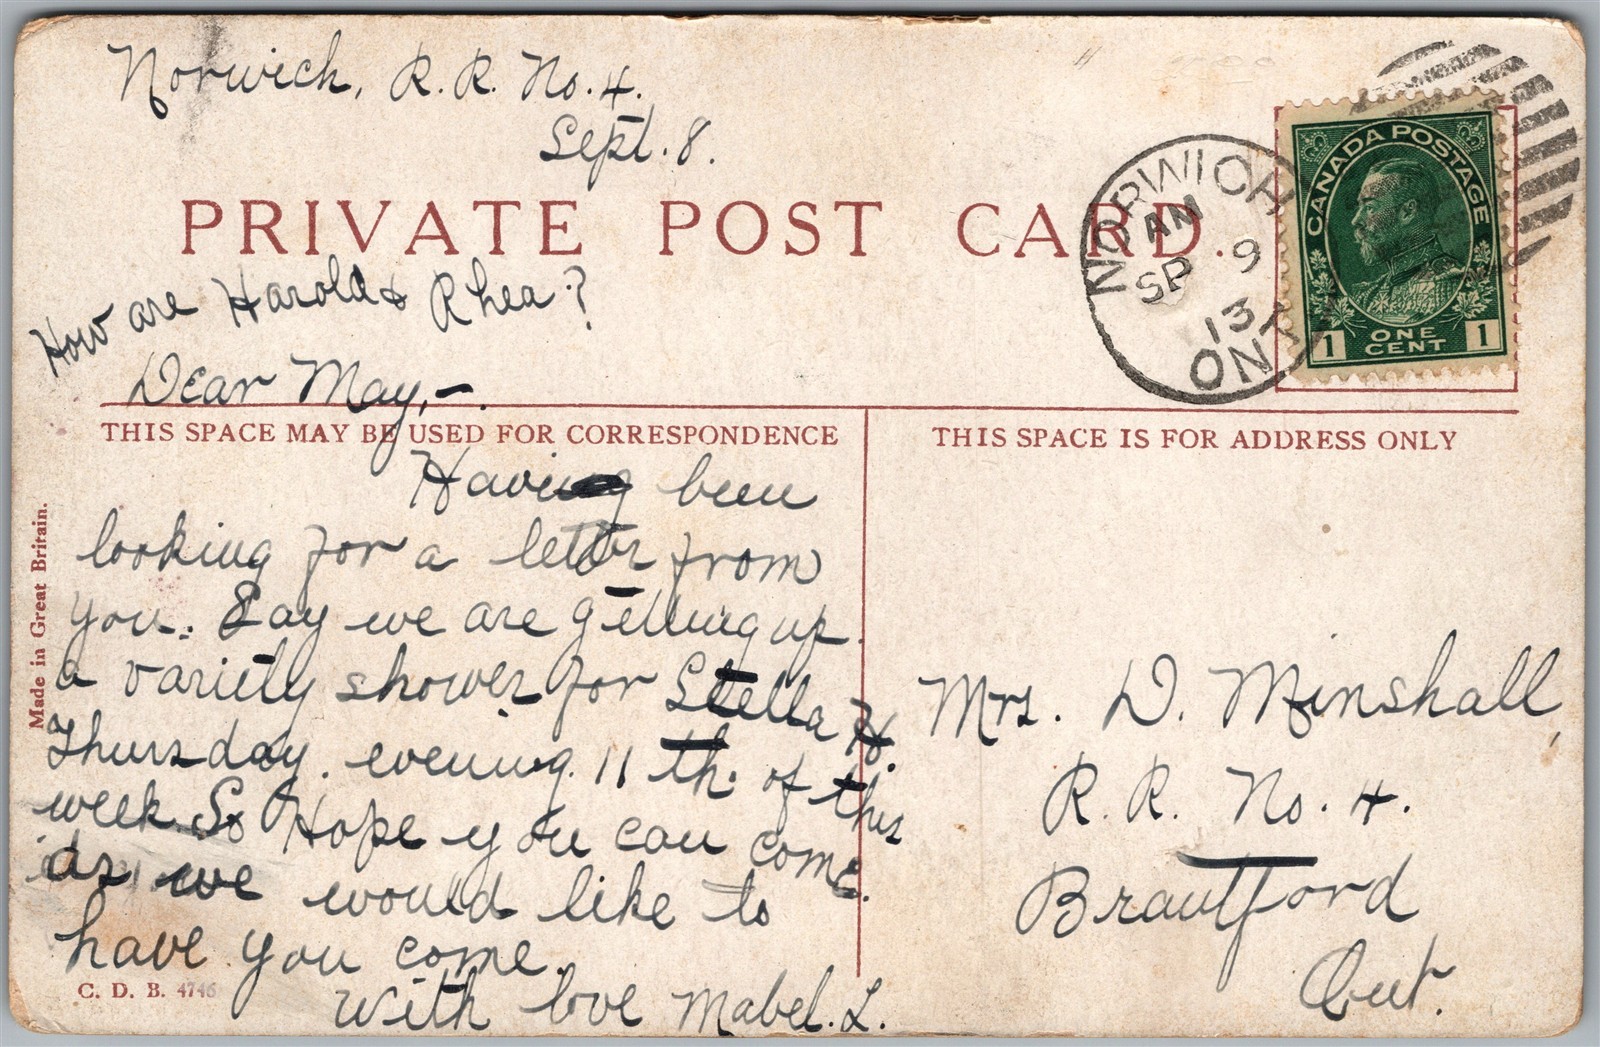 Norwich, R. R. No. 4.
Sept. 8.
PRIVATE POST CARD.
NORWICH
AM
SP 9
13
ONT
CANADA POSTAGE
1 ONE CENT 1
How are Harold & Rhea?
Dear May,-.
THIS SPACE MAY BE USED FOR CORRESPONDENCE
THIS SPACE IS FOR ADDRESS ONLY
Having been
looking for a letter from
you. Say we are getting up
a variety shower for Stella H.
Thursday. evening. 11 th. of this
week. So Hope you can come.
as we would like to
have you come.
With love Mabel. L.
Made in Great Britain.
C. D. B. 4746
Mrs. D. Minshall,
R. R. No. 4.
Brantford
Ont.